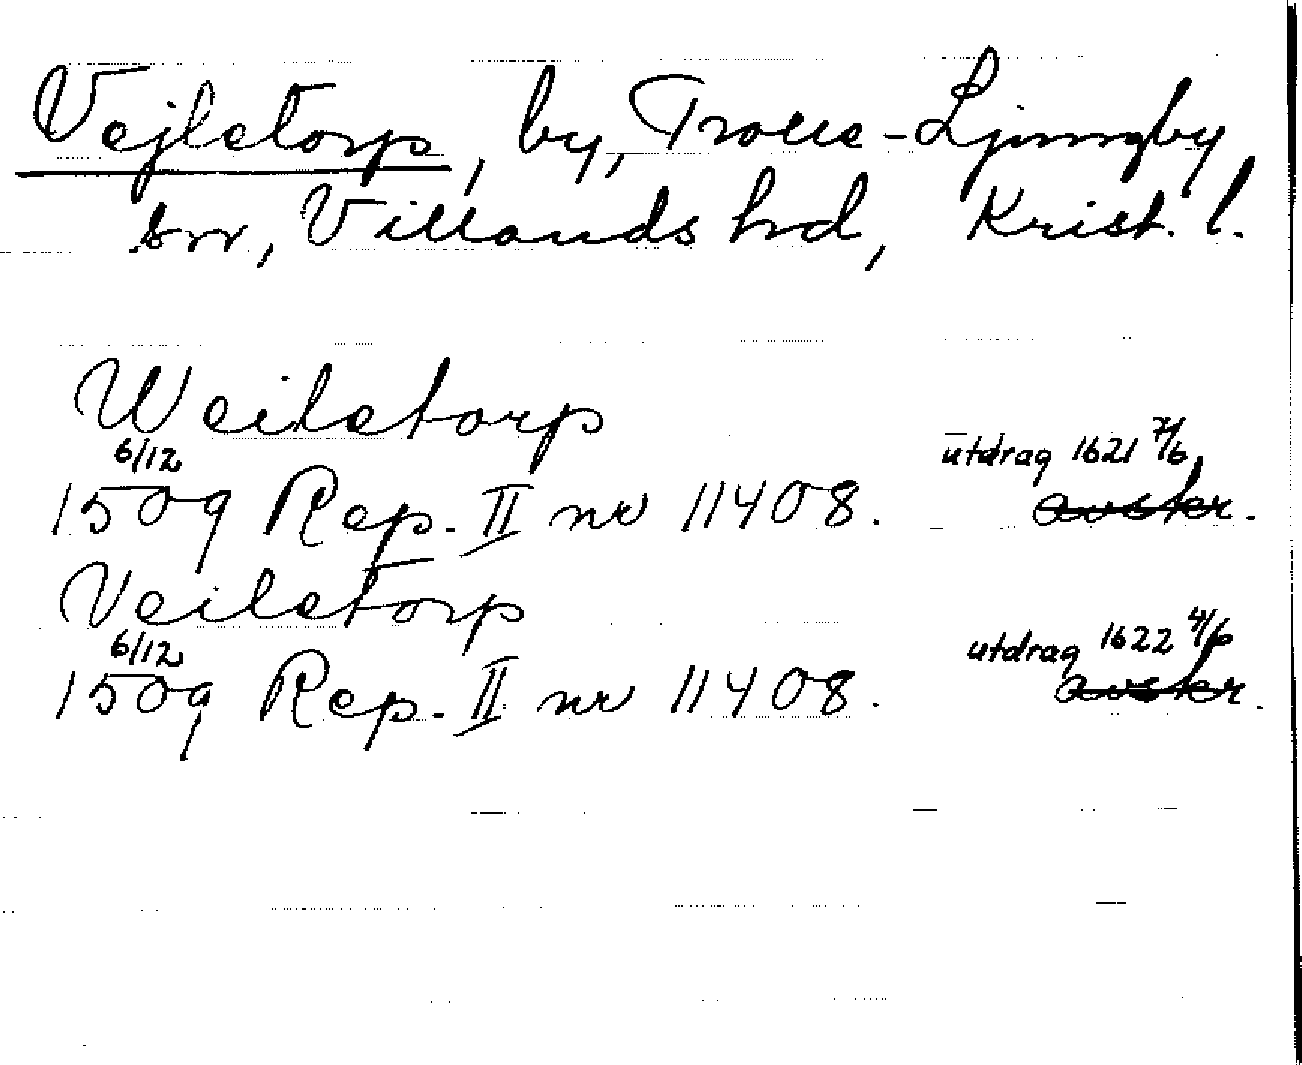 Vejletorp, by, Trolle-Ljungby
sn, Villands hrd, Krist. l.
Weiletorp
6/12 utdrag 1621 7/6
1509 Rep. II nr 11408. avskr.
Veiletorp
6/12 utdrag 1622 4/6
1509 Rep. II nr 11408. avskr.